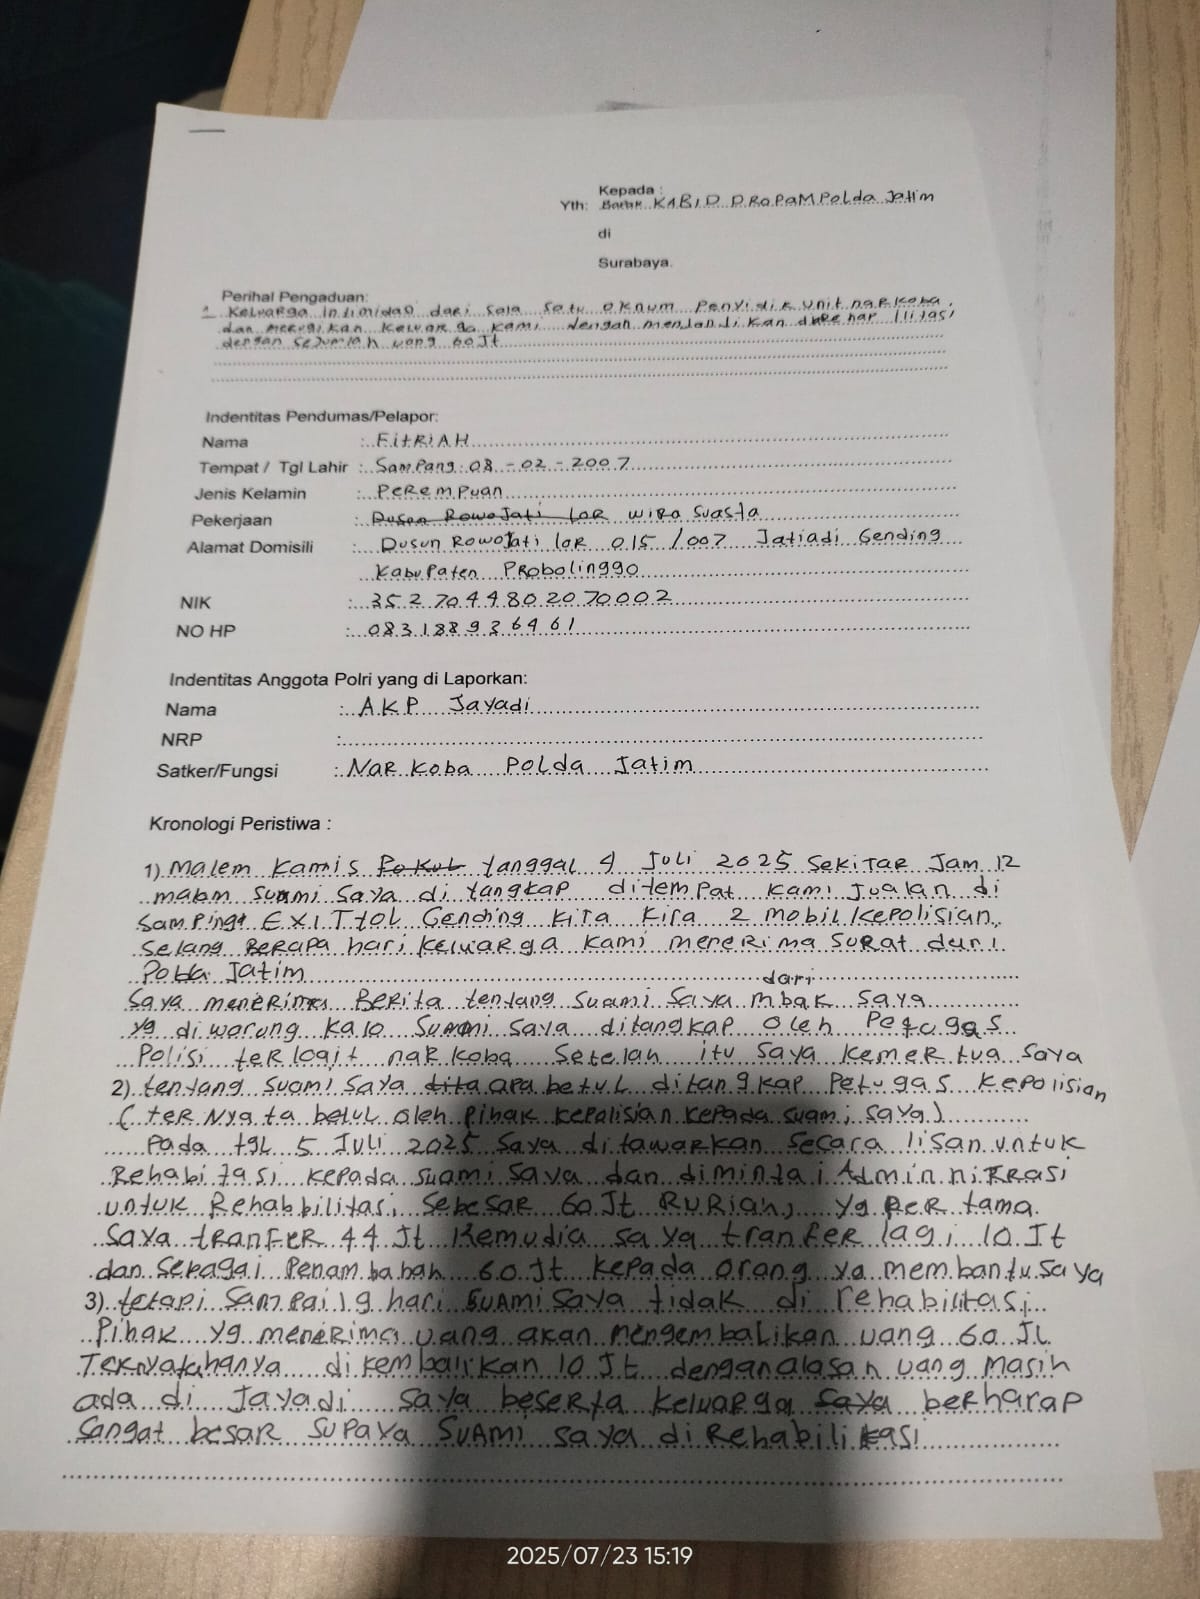 Kepada :
Yth: KABID PROPAM Polda Jatim
di
Surabaya.
Perihal Pengaduan:
Keluarga Intimidasi dari sala satu oknum Penyidik unit narkoba,
dan merugikan keluarga kami dengan menjandikan direhap
dengan sejumlah uang 60 Jt
Indentitas Pendumas/Pelapor:
Nama : FitRiAH
Tempat / Tgl Lahir : Sampang 08 - 02 - 2007
Jenis Kelamin : PeRemPuan
Pekerjaan : Dusun RowoJati loR wiRa Suasta
Alamat Domisili : Dusun RowoJati loR 015 / 007 Jatiadi Gending
KabuPaten PRobolinggo
NIK : 3527044802070002
NO HP : 083188936961
Indentitas Anggota Polri yang di Laporkan:
Nama : AKP Jayadi
NRP :
Satker/Fungsi : NaRkoba Polda Jatim
Kronologi Peristiwa :
1) Malem Kamis tanggal 4 Juli 2025 SekiTaR Jam 12
suami saya di tangkap ditemPat kami Jualan di
samPing EXIT Tol Gending kiTa kira 2 mobil/kepolisian
selang BeRaPA hari keluarga kami meneRima suRat dari
Polda Jatim dari
saya meneRima BeRita tentang suami saya mbak saya
yg diwarung kalo suami saya ditangkap oleh Petugas
Polisi teRkait naRkoba setelah itu saya kemeRtua saya
2) tentang suami saya apa betul ditangkap Petugas kepolisian
(teRNyata betul oleh Pihak kepolisian kepada suami saya)
Pada tgl 5 Juli 2025 saya ditawarkan secara lisan untuk
Rehabitasi kepada suami saya dan dimintai AdminniRRasi
untuk Rehabbilitasi SebesaR 60 Jt RuRiah, yg PeRtama
saya tRanfeR 44 Jt kemudia saya tranfeR lagi 10 Jt
dan sebagai Penambahan 60 Jt kepada orang yg membantu saya
3) tetapi SamPai 19 hari suami saya tidak di rehabilitasi
Pihak yg menerima uang akan mengembalikan uang 60 Jt
TeRnyatahanya dikembalikan 10 Jt dengan alasan uang masih
ada di Jayadi saya beserta keluarga saya berharap
sangat besaR supaya suami saya di Rehabilikasi
2025/07/23 15:19